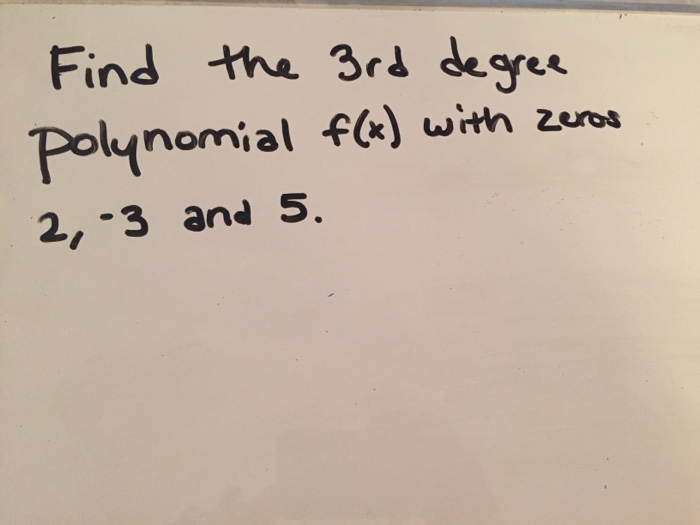 Find the 3rd degree
polynomial f(x) with zeros
2, -3 and 5.